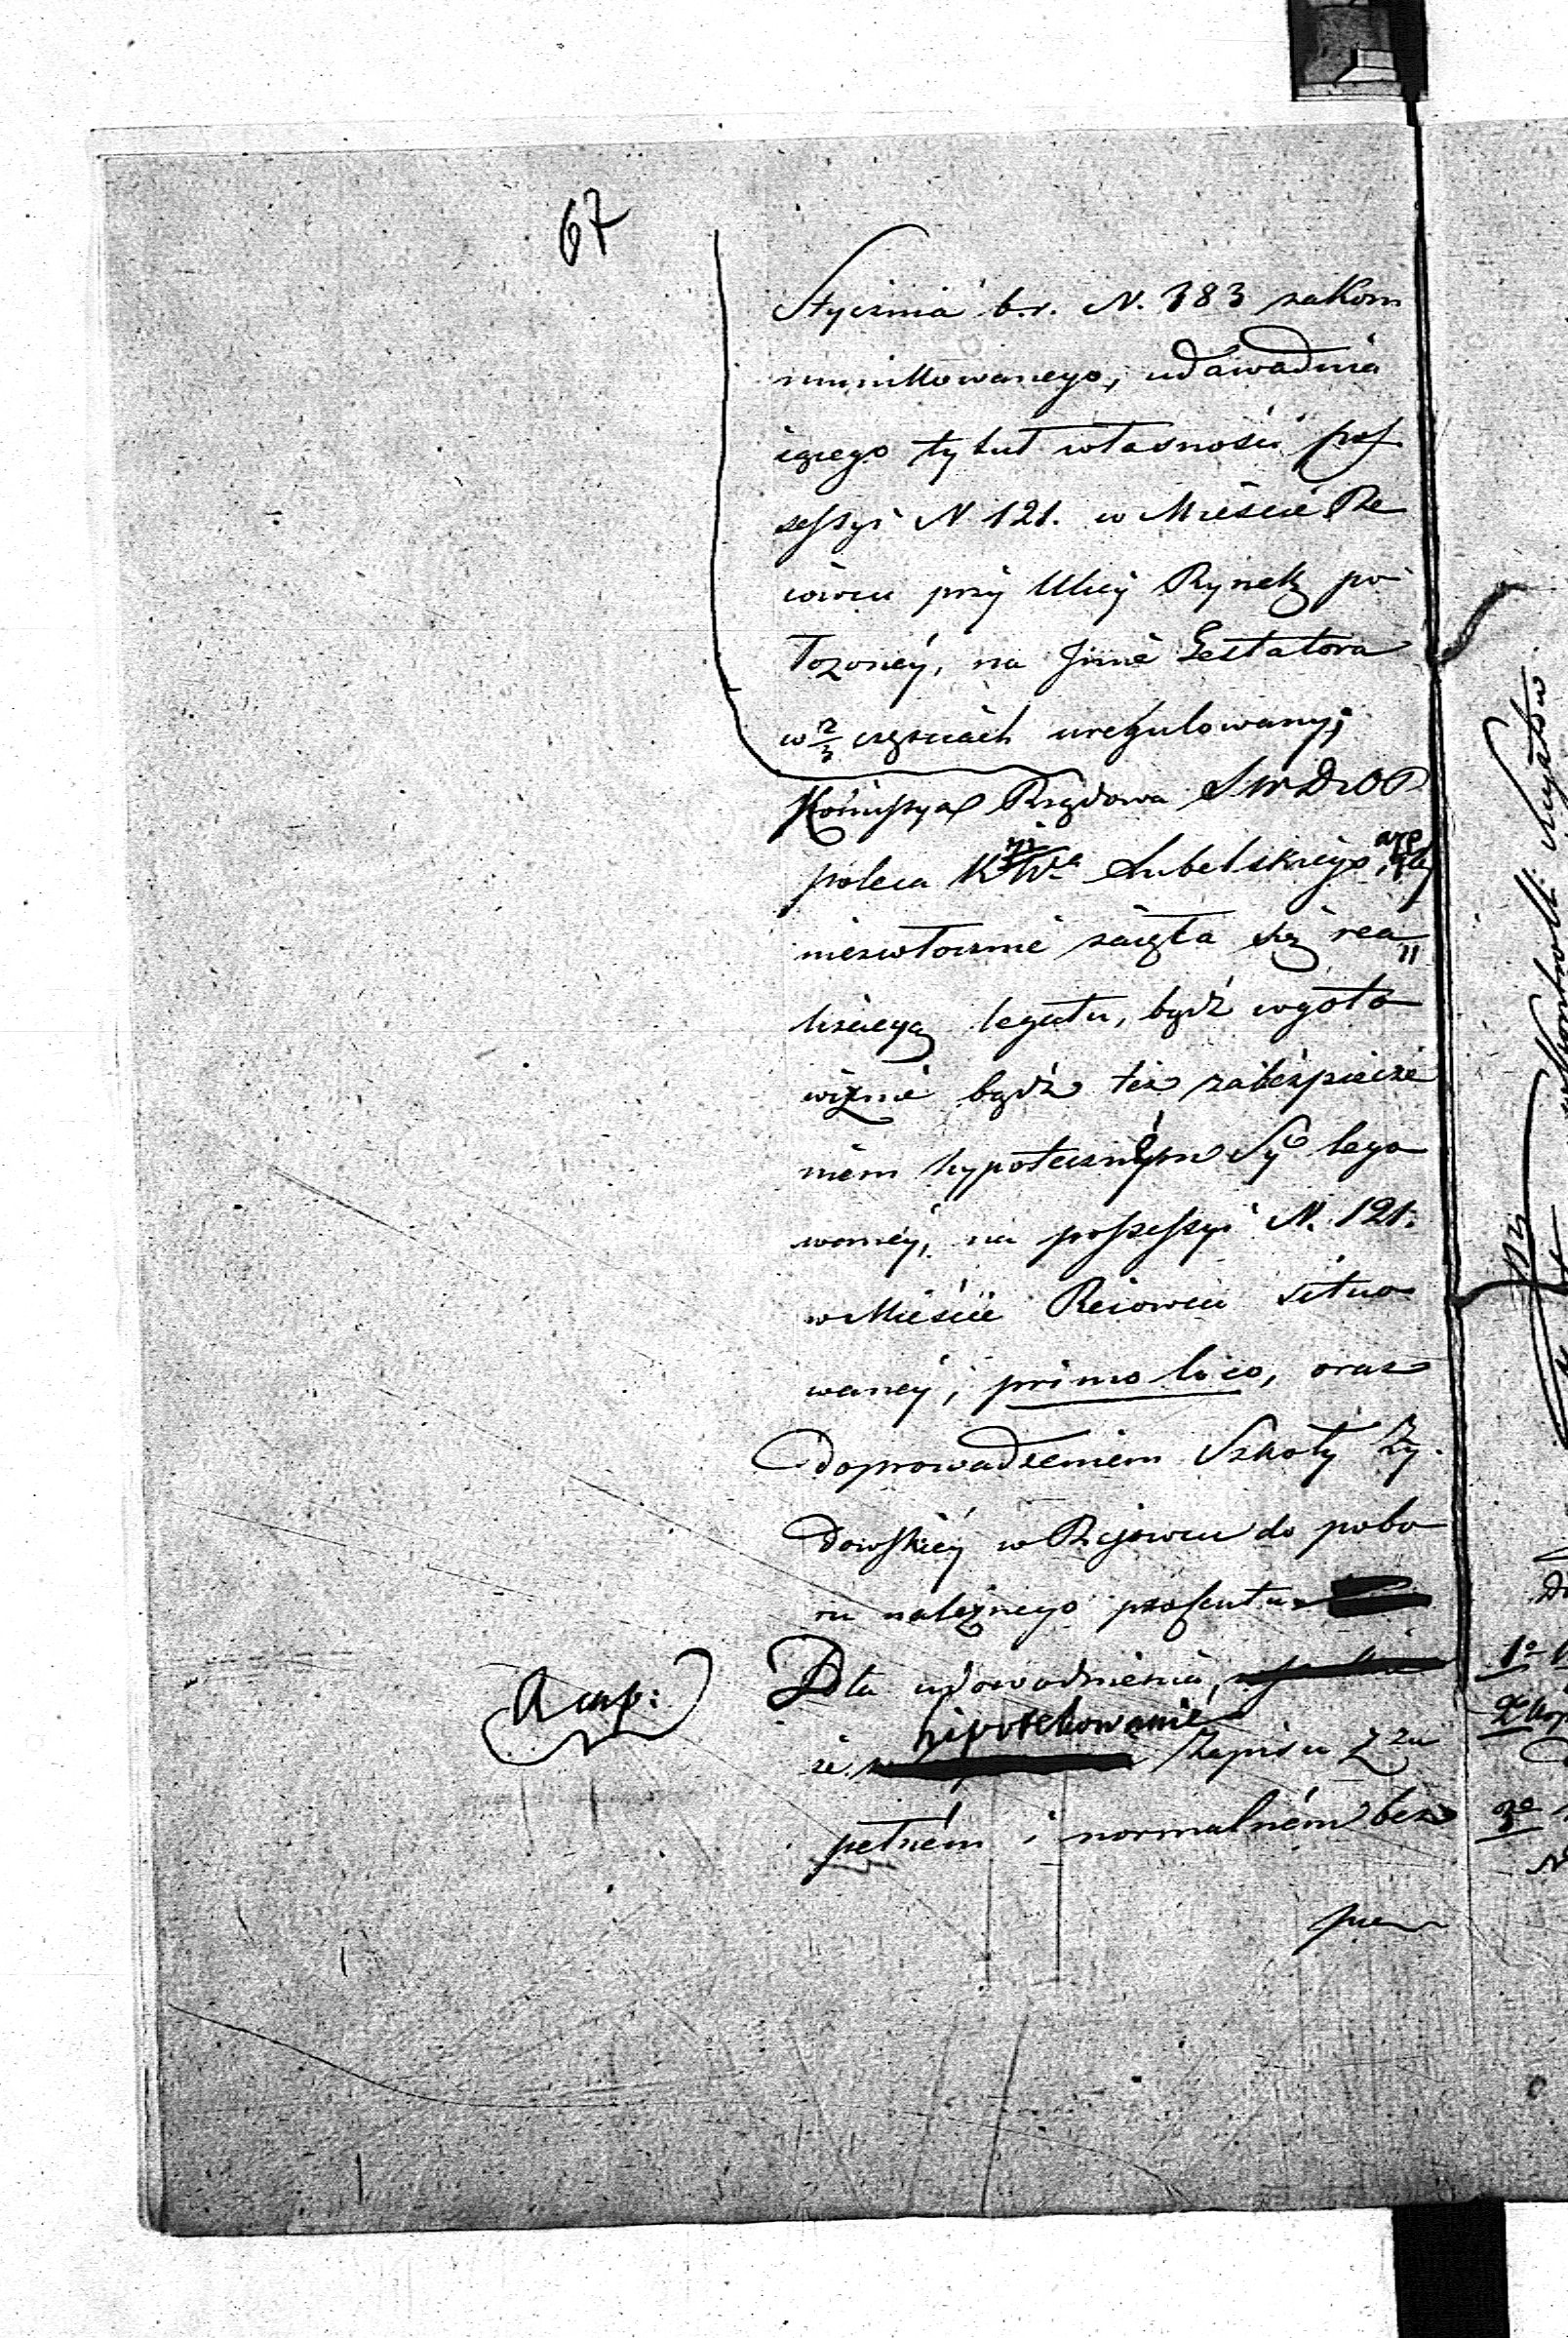 67
Stycznia b.r. N. 383 zakom
munikowanego, udawadnia
iącego tytuł własności pos
sessyi N 121. w Mieście Re
iowcu przy Ulicy Rynek po
łożoney, na Jmie Testatora
w 2/3 częściach uregulowany;
Kommissya Rządowa S W D i O P
poleca Lubelskiego, aże
niezwłocznie zaięła się rea
lizacyą legatu, bądź w goto
wiznie bądź też zabezpiecze
niem hypotecznym Sy lego
waney, na possessyi N. 121.
w Mieście Reiowcu situo
waney, primo loco, oraz
doprowadzeniem Szkoły Ży
dowskiey w Rejowcu do pobo
ru należnego profentu
A cap:
Dla udowodnienia,
hipotekowanie
że zapisu z zu
pełném i normalném bez
pie